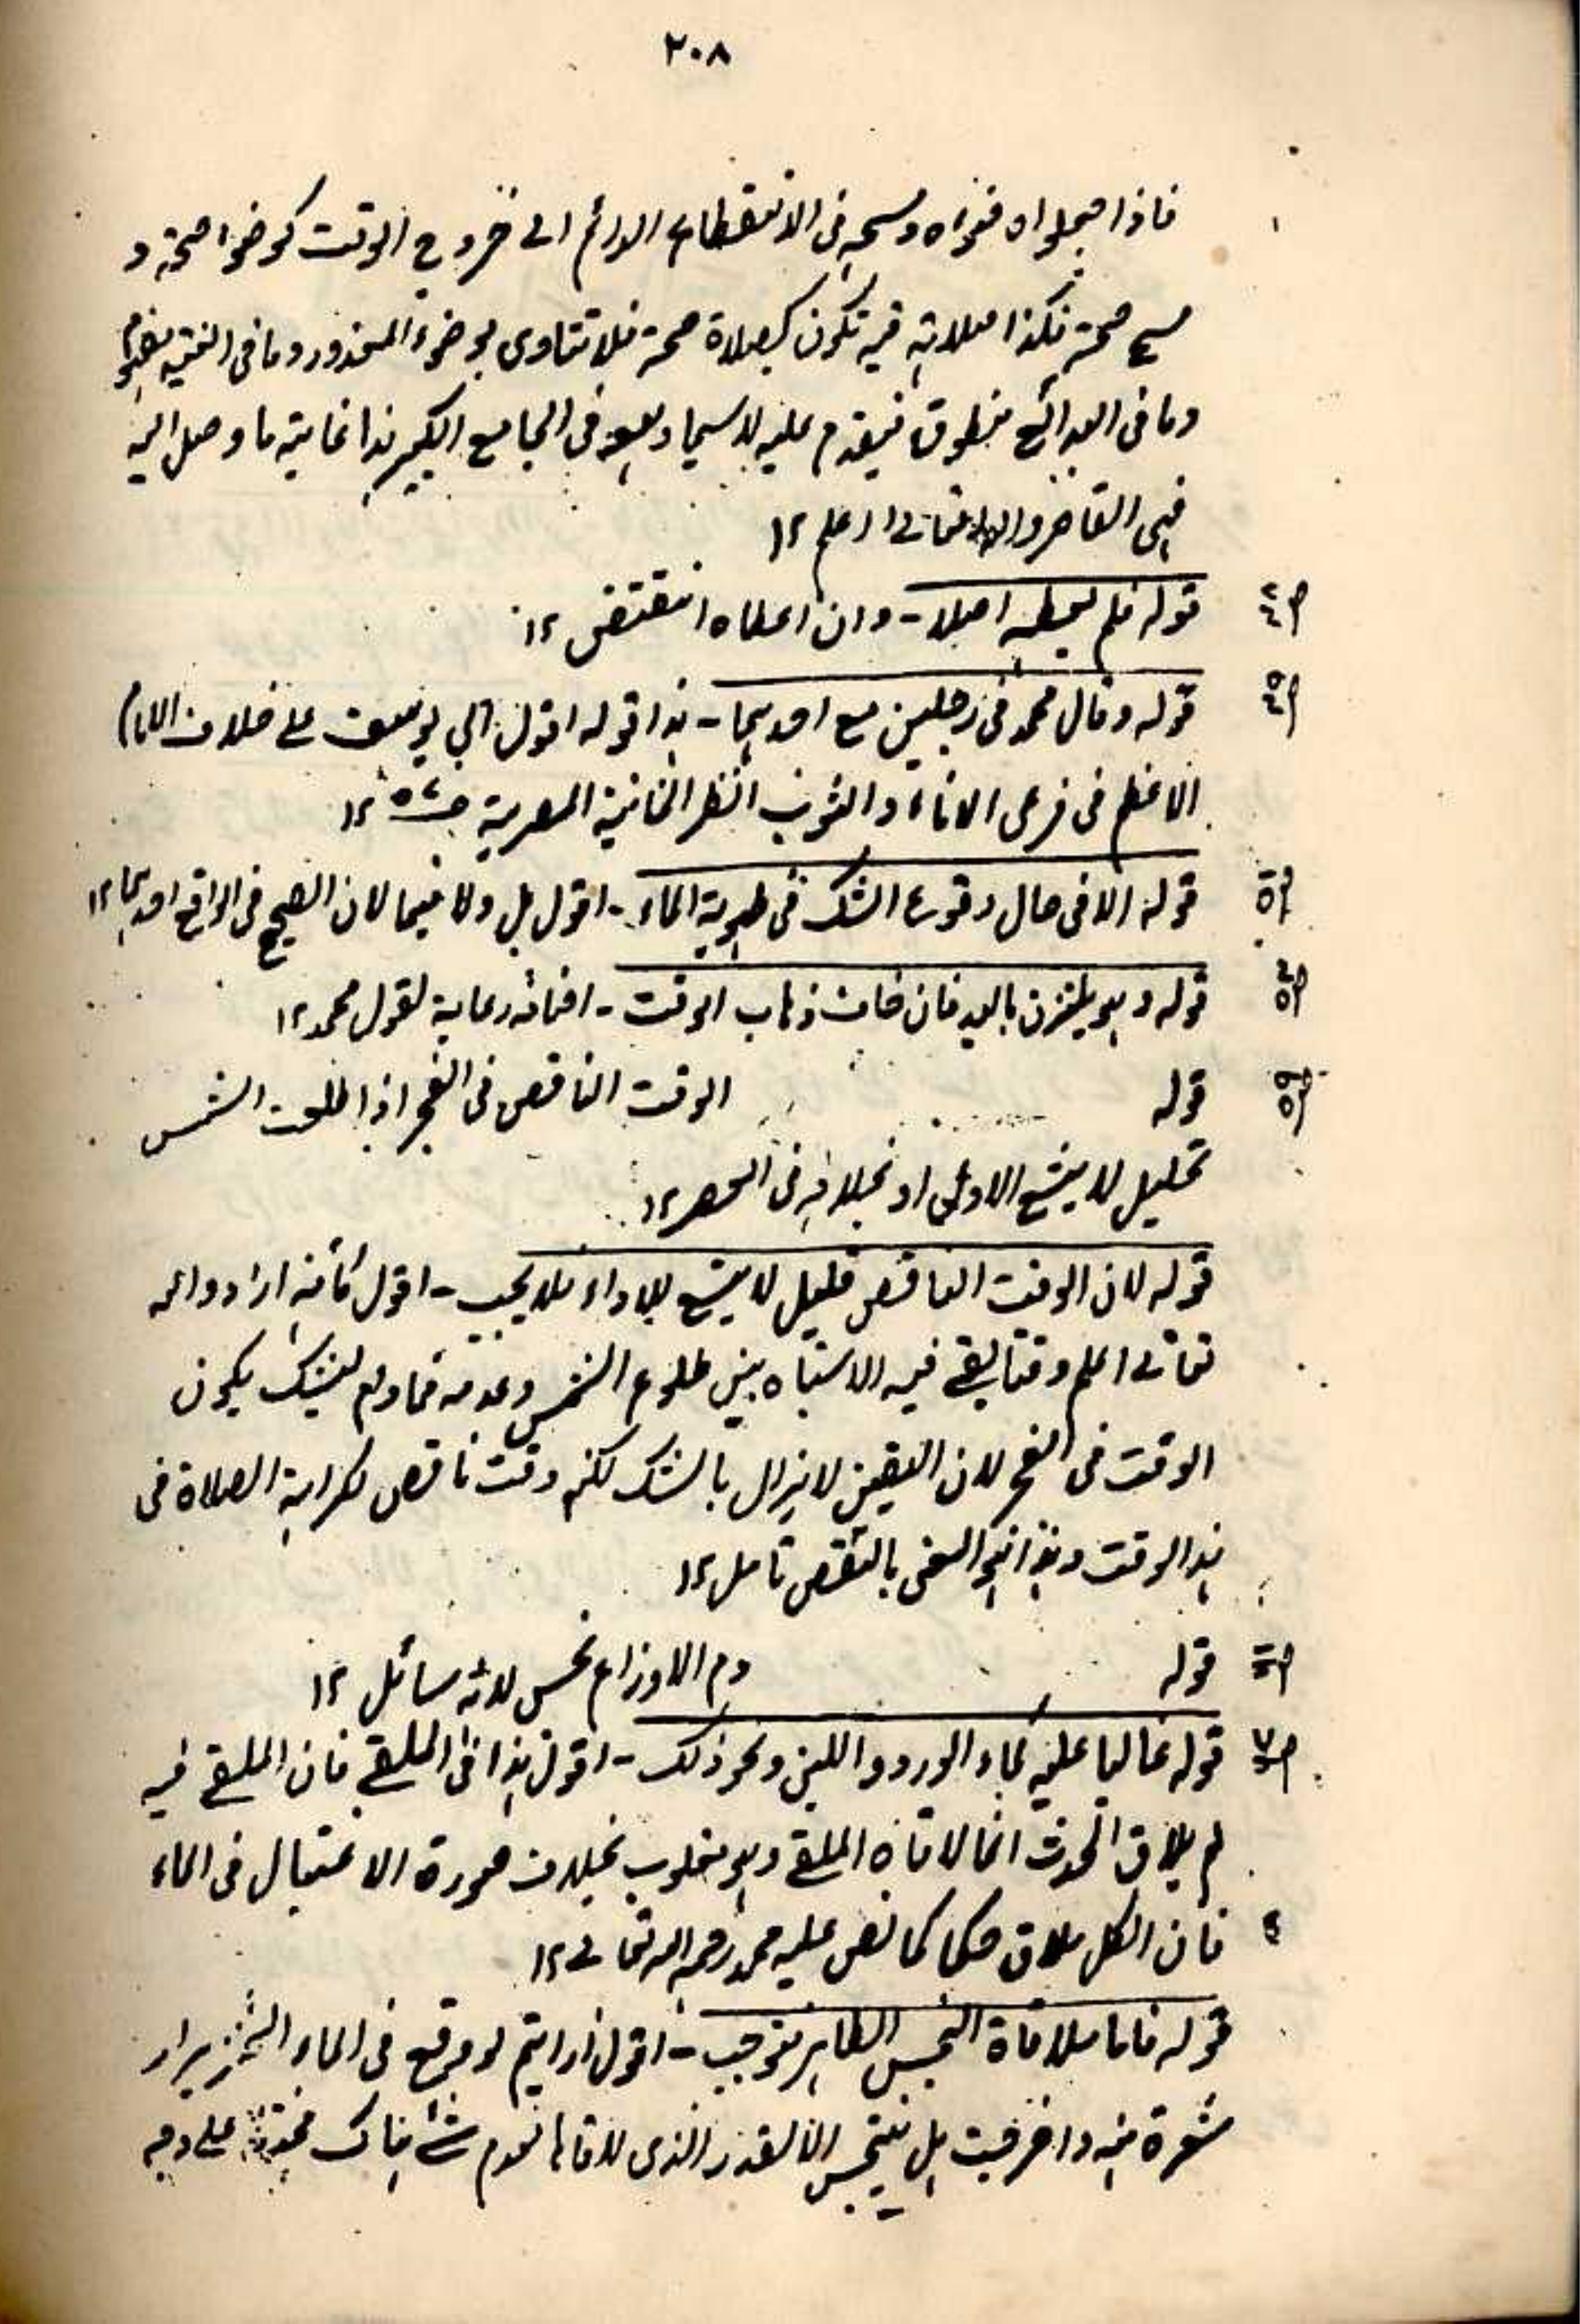 ٢٠٨
فاذا جعلوا وضوءه ومسحه فى الانقطاع الدائم الى خروج الوقت كوضوء صحة و
مسح صحة فكذا صلاته فيه تكون كصلاة صحة فلا تتاوى بوضوء المعذور وما فى الغنية مفهوم
وما فى البدائع منطوق فيقدم عليه لاسيما وهو فى الجامع الكبير هذا غاية ما وصل اليه
فهمى القاصر والله تعالى اعلم ١٢
قوله فلم يعطه اصلا - وان اعطاه انتقض ١٢
قوله وقال محمد فى رجلين مع احدهما - هذا قوله اقول ابى يوسف على خلاف الامام
الاعظم فى فرعى الاناء والثوب انظر الخانية المصرية ١٢
قوله الا فى حال وقوع الشك فى طهورية الماء - اقول بل ولا فيها لان الصحيح فى الواقع احدهما ١٢
قوله وهو بالعيد فان خاف ذهاب الوقت - رعاية لقول محمد ١٢
قوله الوقت الناقص فى الفجر اذا طلعت الشمس
تعليل لا يتسع الاولى او بخلافه فى العصر ١٢
قوله لان الوقت الناقص قليل لا يتسع للاداء فلا يجب - اقول كأنه اراد والله
تعالى اعلم وقتا يبقى فيه الاشتباه بين طلوع الشمس وعدمه فمادام يشك يكون
الوقت فى الفجر لان اليقين لا يزال بالشك لكنه وقت ناقص لكراهة الصلاة فى
هذا الوقت وهذا هو المعنى بالنقص تامل ١٢
قوله دم الاوزاع نجس لانه سائل ١٢
قوله غالبا عليه كماء الورد واللبن ونحو ذلك - اقول هذا فى الملقى فان الملقى فيه
لم يلاق الحدث انما لاقاه الملقى وهو مغلوب بخلاف صورة الاغتسال فى الماء
فان الكل ملاق حكما كما نص عليه محمد رحمه الله تعالى ١٢
قوله فاما ملاقاة النجس الطاهر فتوجب - اقول أرايتم لو وقع فى الماء الخنزير او
شعرة منه واخرجت هل يتنجس الا القدر الذى لاقاها لعدم شئ هناك على وجه